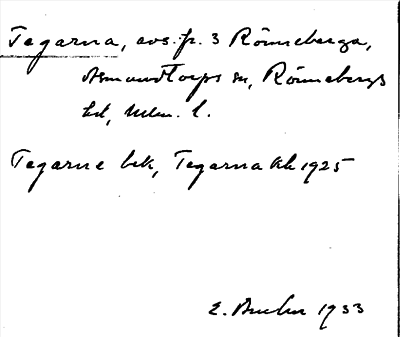 Tegarna, avs. fr. 3 Rönneberga,
Asmundtorps sn, Rönnebergs
hd, Mlm. l.
Tegarne bek, Tegarna Kk 1925
E. 1933